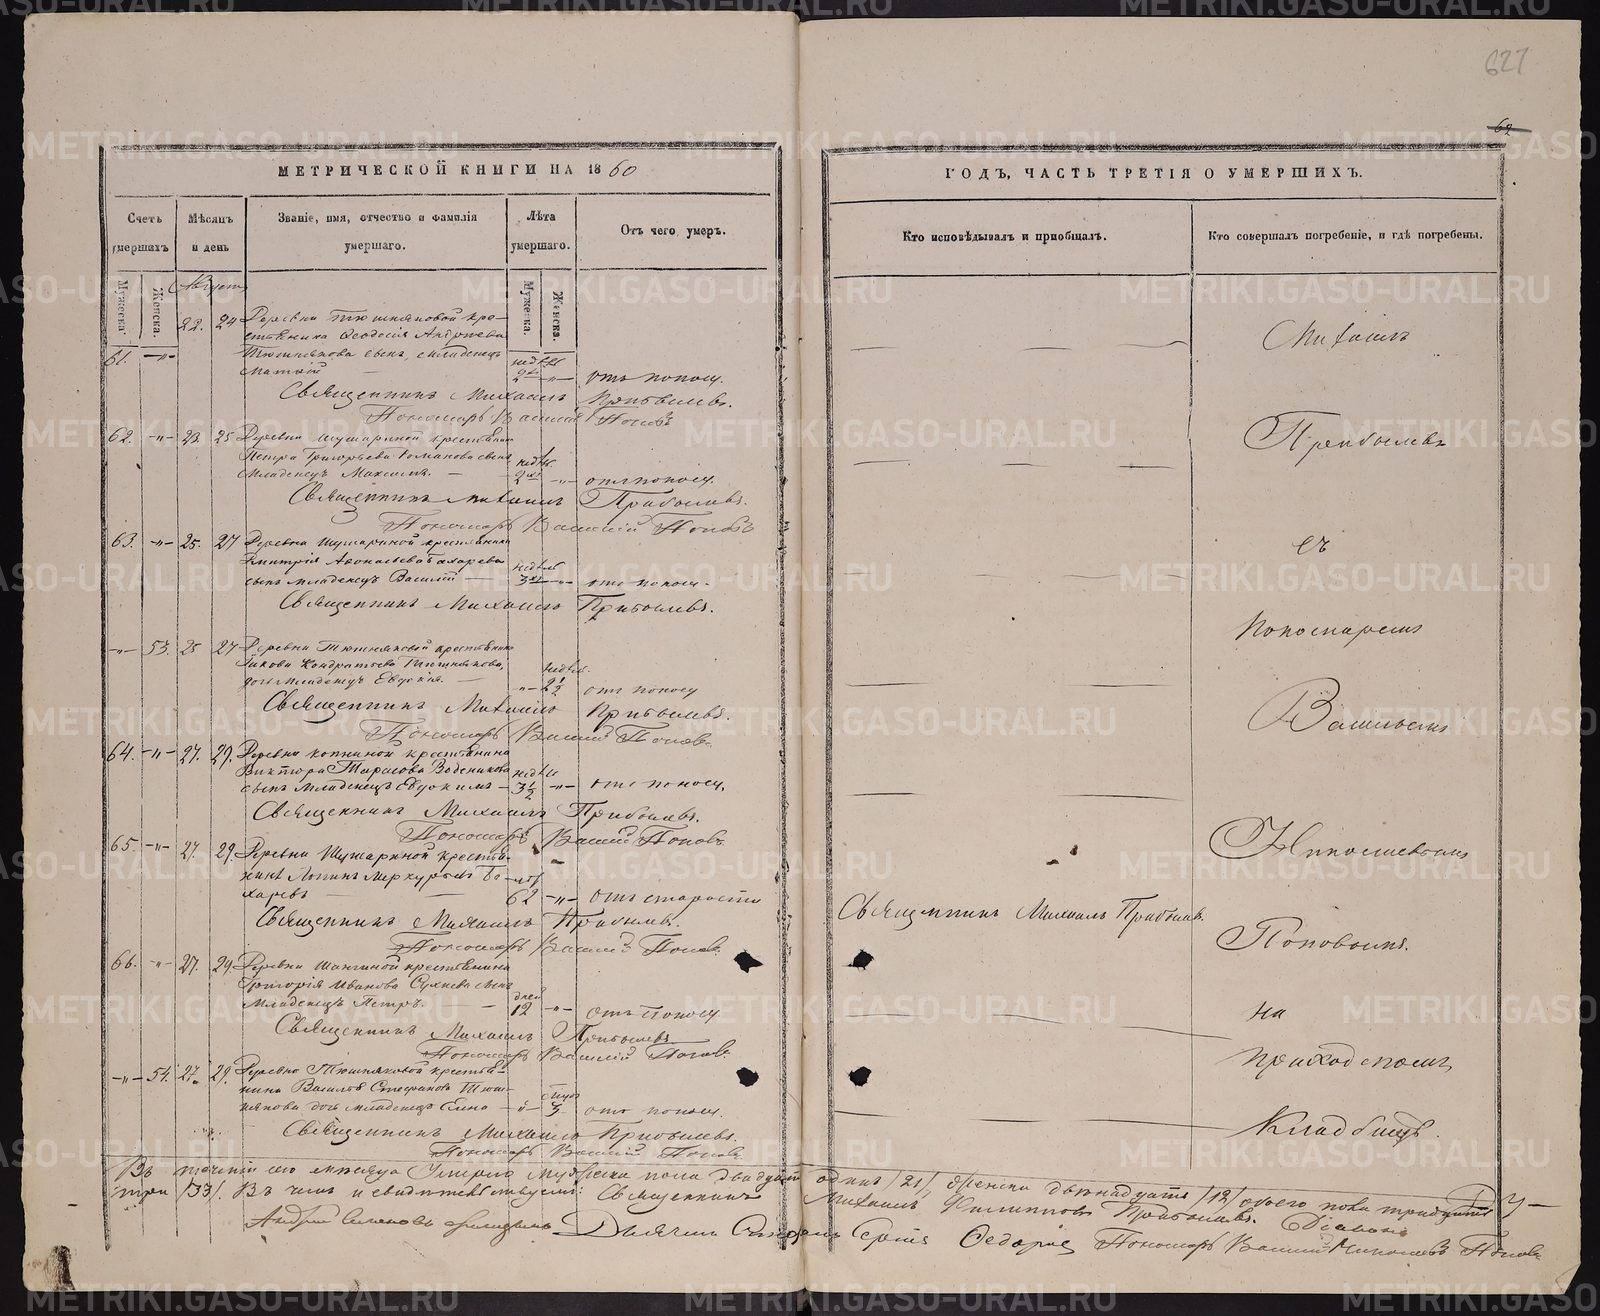 627
62
МЕТРИЧЕСКОЙ КНИГИ НА 1860
Счетъ умершихъ
Мѣсяцъ и день
Званіе, имя, отчество и фамилія умершаго.
Лѣта умершаго.
Отъ чего умеръ.
Мужеска.
Женска.
Мужеска.
Женска.
Августъ
22. 24 Деревни Тюшняковой кре-
стьянина Ѳеодосія Андреева
61. -"- Тюшнякова сынъ, младенецъ
отъ поноса.
Священникъ Михаилъ Прибылевъ.
Пономарь Василій Поповъ
62. -"- 23. 25 Деревни Шушариной крестьянина
Петра Григорьева Романова сынъ
младенецъ Максимъ. отъ поноса.
Священникъ Михаилъ Прибылевъ.
Пономарь Василій Поповъ
63. -"- 25. 27 Деревни Шушариной крестьянина
Дмитрія
сынъ младенецъ Василій 3 -"- отъ поноса.
Священникъ Михаилъ Прибылевъ.
-"- 53. 25 27 Деревни Тюшняковой крестьянина
Якова Кондратьева Тюшнякова,
дочь младенецъ Евдокія. -"- 2 1/2 отъ поноса
Священникъ Михаилъ Прибылевъ.
Пономарь Василій Поповъ
64. -"- 27. 29. Деревни крестьянина
Виктора Тарасова
сынъ младенецъ Евдокимъ 3 1/2 -"- отъ поноса.
Священникъ Михаилъ Прибылевъ.
Пономарь Василій Поповъ
65. -"- 27. 29. Деревни Шушариной крестья-
нинъ Меркурьевъ Бо-
харевъ 62 -"- отъ старости
Священникъ Михаилъ Прибылевъ.
Пономарь Василій Поповъ
66. -"- 27. 29. Деревни крестьянина
Григорія Иванова сынъ
младенецъ Петръ. дней 12 -"- отъ поноса
Священникъ Михаилъ Прибылевъ
Пономарь Василій Поповъ
-"- 54. 27. 29. Деревни Тюшняковой крестья-
нина Василія Стефанова Тюш-
някова дочь младенецъ отъ поноса.
Священникъ Михаилъ Прибылевъ.
Пономарь Василій Поповъ
ГОДЪ, ЧАСТЬ ТРЕТІЯ О УМЕРШИХЪ.
Кто исповѣдывалъ и пріобщалъ.
Кто совершалъ погребеніе, и гдѣ погребены.
Священникъ Михаилъ Прибылевъ.
Михаилъ
Прибылевъ
съ
Пономаремъ
Васильемъ
Николаевымъ
Поповымъ.
на
приходскомъ
Кладбищѣ.
Въ теченіи сего мѣсяца умерло мужеска пола двадцать одинъ /21/, женска двѣнадцать /12/ обоего пола тридцать
три /33/. Въ чемъ и свидѣтельствуемъ: Священникъ Михаилъ Филипповъ Прибылевъ. Діаконъ
Андрей Дьячекъ Сергій Ѳедоровъ Пономарь Василій Николаевъ Поповъ
METRIKI.GASO-URAL.RU